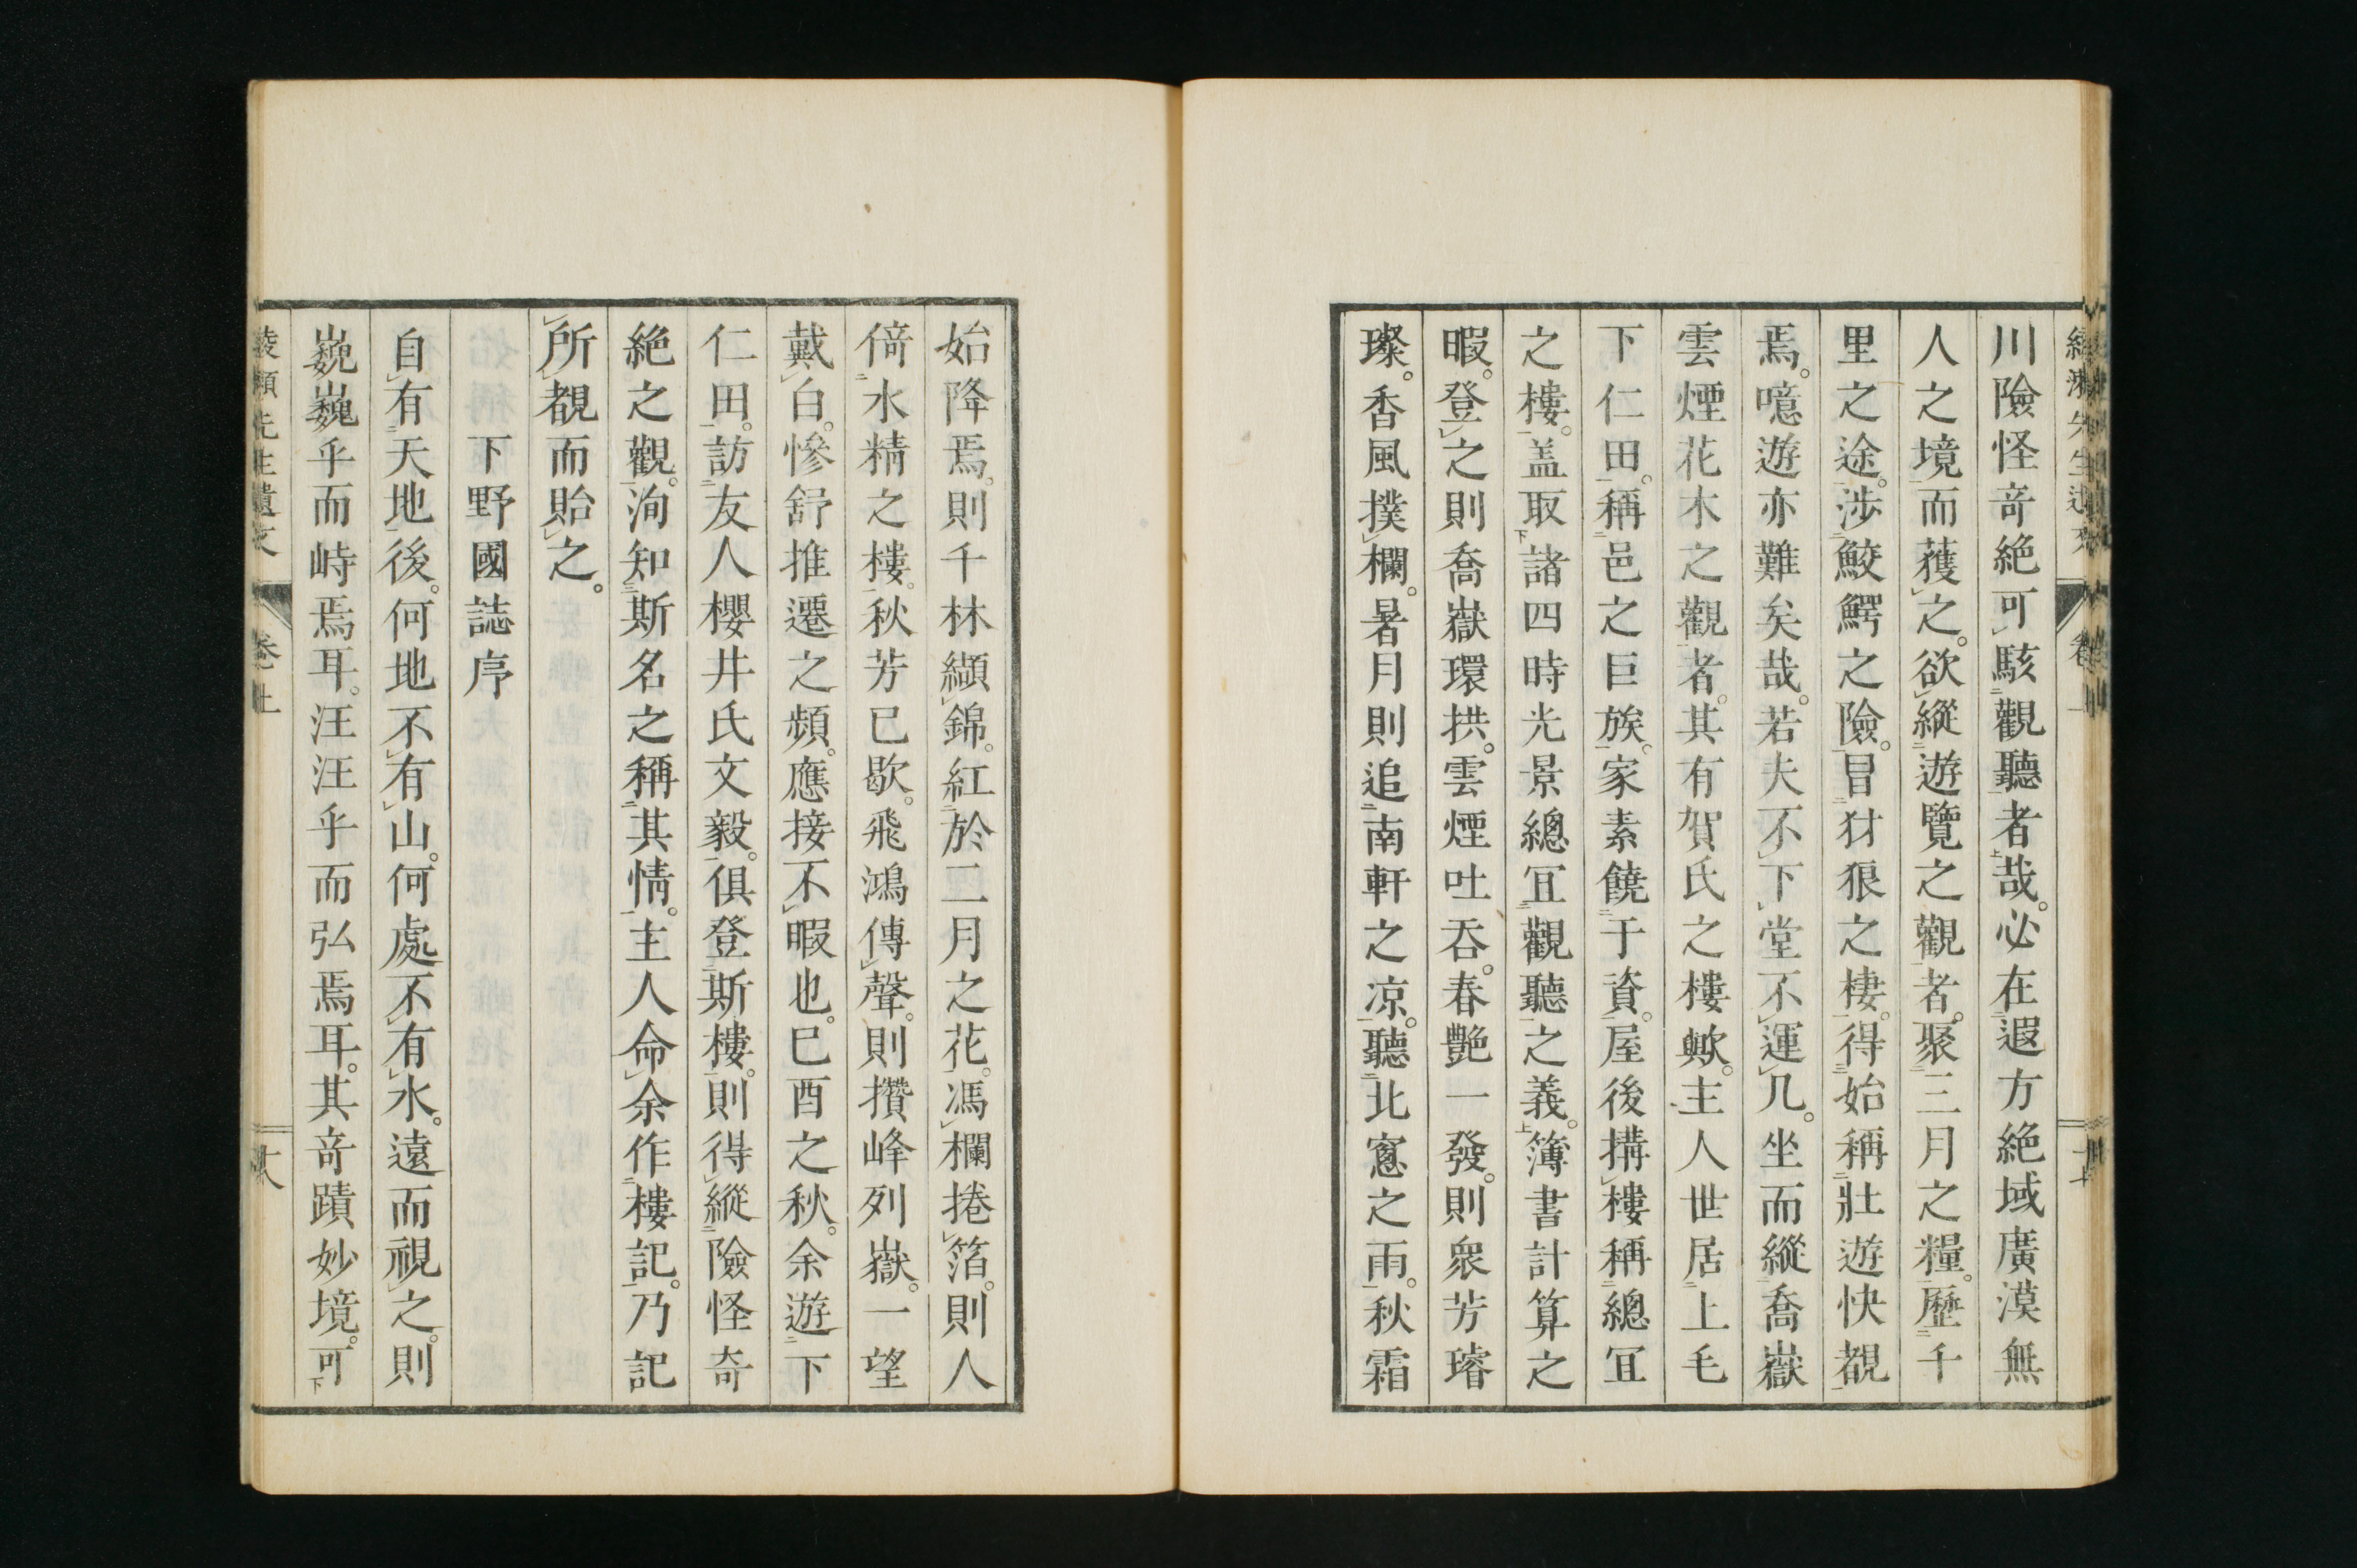 川險怪竒絶可駭觀聽者哉。必在遐方絶域廣漠無
人之境而獲之。欲縱遊覽之觀者。聚三月之糧。歷千
里之途。涉鮫鰐之險。冒犲狼之棲。得始稱壯遊快覩
焉。噫遊亦難矣哉。若夫不下堂不運几。坐而縱喬嶽
雲煙花木之觀者。其有賀氏之樓歟。主人世居上毛
下仁田。稱邑之巨族。家素饒于資。屋後搆樓稱總冝
之樓。盖取諸四時光景總冝觀聽之義。簿書計算之
暇。登之則喬嶽環拱。雲煙吐吞。春艷一發。則衆芳璿
璨。香風撲欄。暑月則追南軒之凉。聽北窻之雨。秋霜
始降焉。則千林纈錦。紅於二月之花。馮欄捲箔。則人
倚水精之樓。秋芳已歇。飛鴻傳聲。則攢峰列嶽。一望
戴白。慘舒推遷之頻。應接不暇也。巳酉之秋。余遊下
仁田。訪友人櫻井氏文毅。俱登斯樓。則得縱險怪奇
絶之觀。洵知斯名之稱其情。主人命余作樓記。乃記
所覩而貽之。
下野國誌序
自有天地後。何地不有山。何處不有水。遠而視之。則
巍巍乎而峙焉耳。汪汪乎而弘焉耳。其竒蹟妙境。可
先生遺文
卷上
十八